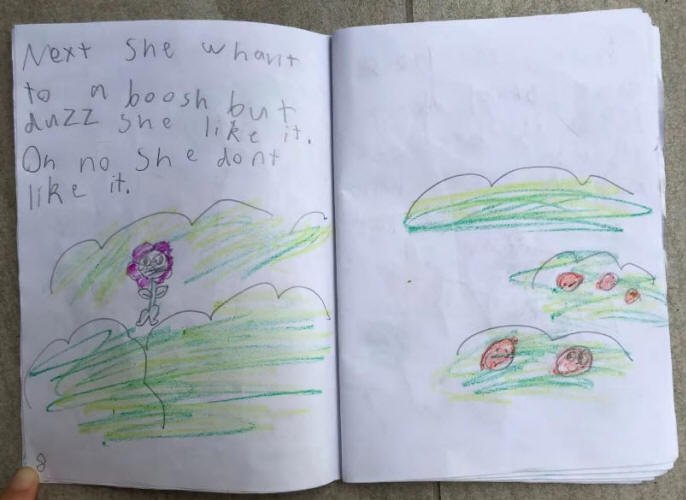 Next she whant
to a boosh but
duzz she like it.
Oh no she dont
like it.
2